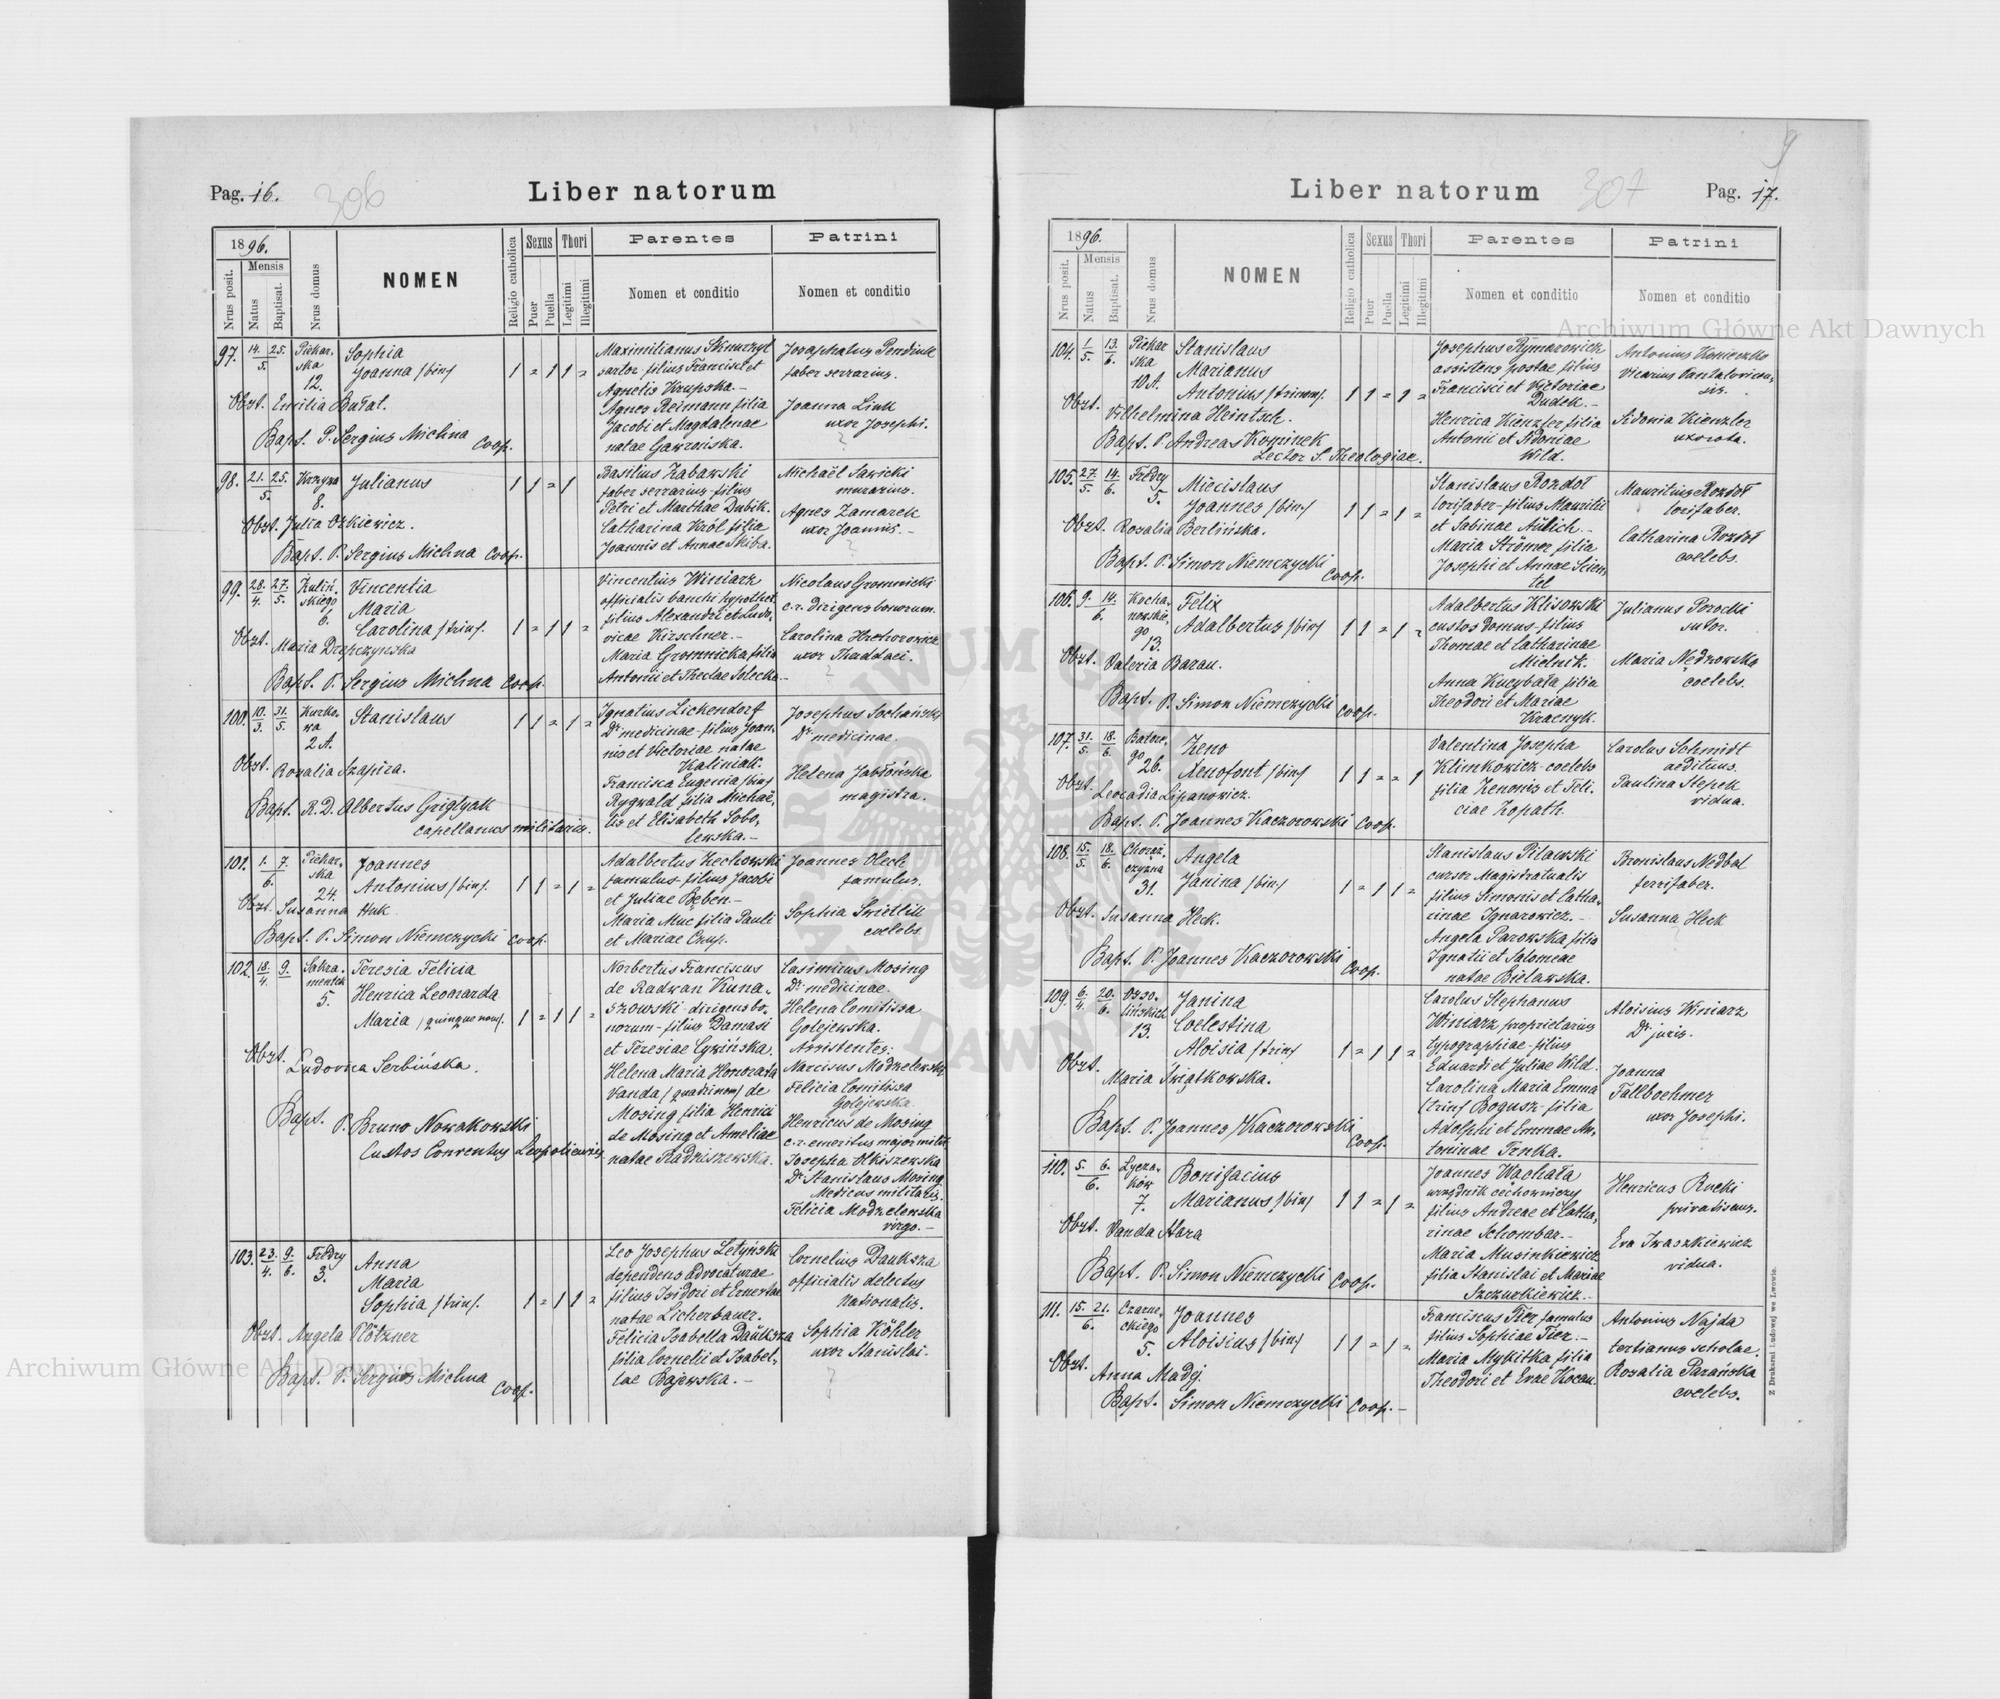 Pag. 16.
306
Liber natorum
1896.
Mensis
Nrus posit.
Natus
Baptisat.
Nrus domus
NOMEN
Religio catholica
Sexus
Puer
Puella
Thori
Legitimi
Illegitimi
Parentes
Nomen et conditio
Patrini
Nomen et conditio
97. 14. 25. Piekar-
5. ska
12.
Sophia
Joanna /bin/
1 = 1 1 =
Obst. Emilia Bułat.
Bapt. P. Sergius Michna Coop.
Maximilianus
sartor filius Francisci et
Agnetis Krupska. -
Agnes Reimann filia
Jacobi et Magdalenae
natae Gawrońska.
Josaphatus Pendiuk
faber serrarius.
Joanna Link
uxor Josephi.
98. 21. 25. Krzywa
5. 8.
Julianus
1 1 = 1
Obst. Julia Ozkiewicz.
Bapt. P. Sergius Michna Coop.
Basilius Zabawski
faber serrarius - filius
Petri et Marthae Dubik.
Catharina Król filia
Joannis et Annae Skiba.
Michaël Sawicki
murarius.
Agnes Zamarek
uxor Joannis. -
99. 28. 27. Zuliń-
4. 5. skiego
6.
Vincentia
Maria
Carolina /trin/.
1 = 1 1 =
Obst. Maria Drapczynska
Bapt. P. Sergius Michna Coop.
Vincentius Winiarz
officialis banchi hypothet.
filius Alexandri et Ludo-
vicae Kirschner. -
Maria Gromnicka filia
Antonii et Theclae Solecka. -
Nicolaus Gromnicki
c.r. dirigens bonorum.
Carolina Hrehorowicz
uxor Thaddaei.
100. 10. 31. Kurko-
3. 5. wa
2 A.
Stanislaus
1 1 = 1 =
Obst. Rosalia Szapira.
Bapt. R.D. Albertus Griglyak
capellanus militaris.
Ignatius Lickendorf
Dr medicinae - filius Joan-
nis et Victoriae natae
Kaliniak.
Francisca Eugenia /bin/
Rygwald filia Michaë-
lis et Elisabeth Sobo-
lewska. -
Josephus Sochański
Dr medicinae.
Helena Jabłońska
magistra.
101. 1. 7. Piekar-
6. ska
24.
Joannes
Antonius /bin/.
1 1 = 1 =
Obst. Susanna Huk
Bapt. P. Simon Niemczycki Coop.
Adalbertus Zechowski
famulus - filius Jacobi
et Juliae Bęben -
Maria Muc filia Pauli
et Mariae Czup.
Joannes Olech
famulus.
Sophia Świetlik
coelebs.
102. 18. 9. Sakra-
4. mentek
5.
Teresia Felicia
Henrica Leonarda
Maria /quinquenom/.
1 = 1 1 =
Obst. Ludovica Serbińska.
Bapt. P. Bruno Nowakowski
Custos Conventus Leopoliensis
Norbertus Franciscus
de Radwan Kuna-
szowski - dirigens bo-
norum - filius Damasi
et Teresiae Cywińska.
Helena Maria Honorata
Vanda /quadrinom/ de
Mosing filia Henrici
de Mosing et Ameliae
natae Radziszewska.
Casimirus Mosing
Dr medicinae.
Helena Comitissa
Golejewska.
Assistentes:
Narcisus Modzelewski
Felicia Comitissa
Golejewska.
Henricus de Mosing
c.r. emeritus major milit.
Josepha Olkiszewska
Dr Stanislaus Mosing
Medicus militaris.
Felicia Modzelewska
virgo. -
103. 23. 9. Fredry
4. 6. 3.
Anna
Maria
Sophia /trin/.
1 = 1 1 =
Obst. Angela Plötzner
Bapt. P. Sergius Michna Coop.
Leo Josephus Letyński
dependens advocaturae
filius Isidori et Ernestae
natae Licherbauer.
Felicia Isabella Daŭksza
filia Cornelii et Isabel-
lae Bajewska. -
Cornelius Dauksza
officialis delectus
Nationalis.
Sophia Köhler
uxor Stanislai.
Liber natorum
307
Pag. 17.
9
1896.
Mensis
Nrus posit.
Natus
Baptisat.
Nrus domus
NOMEN
Religio catholica
Sexus
Puer
Puella
Thori
Legitimi
Illegitimi
Parentes
Nomen et conditio
Patrini
Nomen et conditio
104. 1 13. Piekar
5. 6. ska
10 A.
Stanislaus
Marianus
Antonius /trinom/.
1 1 = 1 =
Obst. Vilhelmina Heintsch.
Bapt. P. Andreas Kominek
Lector S. Theologiae.
Josephus Rymarowicz
assistens postae filius
Francisci et Victoriae
Dudek. -
Henrica Kienzler filia
Antonii et Sidoniae
Wild.
Antonius Konieczko
Vicarius Pantalovicen-
sis.
Sidonia Kienzler
uxorata.
105. 27. 14. Fredry
5. 6. 5.
Miecislaus
Joannes /bin/
1 1 = 1 =
Obst. Rosalia Berlińska.
Bapt. P. Simon Niemczycki
Coop.
Stanislaus Rozdoł
lorifaber - filius Mauritii
et Sabinae Aŭlich. -
Maria Strömer filia
Josephi et Annae Scien-
tel
Mauritius Rozdoł
lorifaber.
Catharina Rozdoł
coelebs.
106. 9. 14. Kocha-
6. nowskie-
go
13.
Felix
Adalbertus /bin/
1 1 = 1 =
Obst. Valeria Baran.
Bapt. P. Simon Niemczycki
Coop.
Adalbertus Klisowski
custos domus - filius
Thomae et Catharinae
Mielnik.
Anna Kucybała filia
Theodori et Mariae
Kracnyk.
Julianus Porocki
sutor.
Maria Nędzowska
coelebs.
107. 31. 18. Batore-
5. 6. go
26.
Zeno
Xenofont /bin/
1 1 = = 1
Obst. Leocadia Lipanowicz.
Bapt. P. Joannes Kaczorowski Coop.
Valentina Josepha
Klimkowicz - coelebs
filia Zenonis et Feli-
ciae Kopath.
Carolus Schmidt
aedituus.
Paulina Stepek
vidua.
108. 15. 18. Chorąż-
5. 6. czyzna
31.
Angela
Janina /bin/
1 = 1 1 =
Obst. Susanna Heck.
Bapt. P. Joannes Kaczorowski
Coop.
Stanislaus Pilawski
cursor Magistratualis
filius Simonis et Catha-
rinae Ignarowicz. -
Angela Parowska filia
Ignatii et Salomeae
natae Bielawska.
Bronislaus Nedbal
ferrifaber.
Susanna Heck
109. 6. 20. Osso-
4. 6. lińskich
13.
Janina
Coelestina
Aloisia /trin/
1 = 1 1 =
Obst. Maria Świątkowska.
Bapt. P. Joannes Kaczorowski
Coop.
Carolus Stephanus
Winiarz proprietarius
typographiae - filius
Eduardi et Juliae Wild.
Carolina Maria Emma
/trin/ Bogusz - filia
Adolphi et Emmae An-
toninae Trnka.
Aloisius Winiarz
Dr juris.
Joanna
Fallboehmer
uxor Josephi.
110. 5. 6. Łycza-
6. ków
7.
Bonifacius
Marianus /bin/
1 1 = 1 =
Obst. Vanda Stara
Bapt. P. Simon Niemczycki Coop.
Joannes Wachała
urzędnik cechowniczy
filius Andreae et Catha-
rinae Schombar. -
Maria Musinkiewicz
filia Stanislai et Mariae
Szczurkiewicz. -
Henricus Rucki
privatisans.
Eva Iwaszkiewicz
vidua.
111. 15. 21. Czarne-
6. ckiego
5.
Joannes
Aloisius /bin/
1 1 = 1 =
Obst. Anna Madej.
Bapt. Simon Niemczycki Coop. -
Franciscus Tier famulus
filius Sophiae Tier. -
Maria Mykitka filia
Theodori et Evae Kocan.
Antonius Najda
tertianus scholae.
Rosalia Parańska
coelebs.
Z Drukarni Ludowej we Lwowie.
Archiwum Główne Akt Dawnych
Archiwum Główne Akt Dawnych